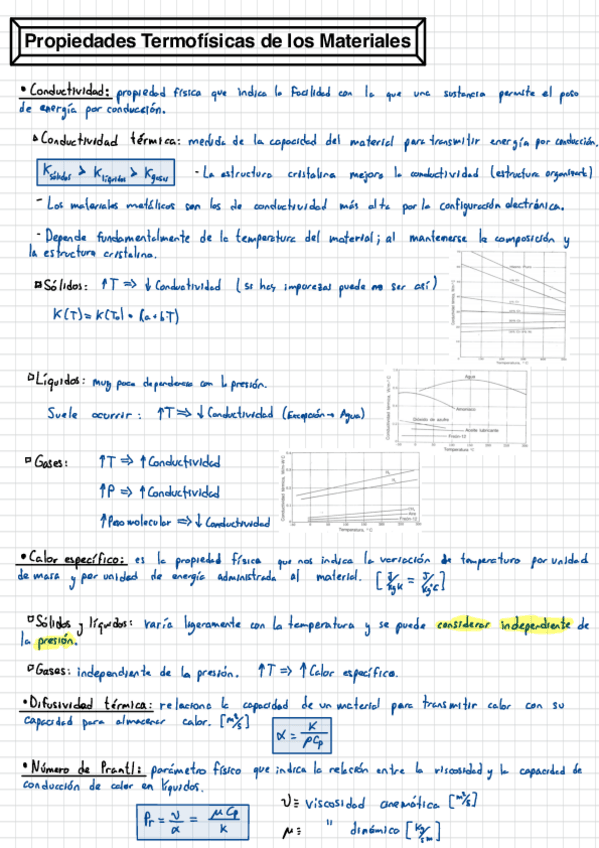 Propiedades Termofísicas de los Materiales
• Conductividad: propiedad física que indica la facilidad con la que una sustancia permite el paso
de energía por conducción.
Conductividad térmica: medida de la capacidad del material para transmitir energía por conducción.
K sólidos > K líquidos > K gases - La estructura cristalina mejora la conductividad (estructura organizada)
- Los materiales metálicos son los de conductividad más alta por la configuración electrónica.
- Depende fundamentalmente de la temperatura del material; al mantenerse la composición y
la estructura cristalina.
Sólidos: ↑T ⇒ ↓ Conductividad (si hay impurezas puede no ser así)
K(T) = K(T₀) · (a+bT)
Temperatura, °C
Líquidos: muy poca dependencia con la presión.
Suele ocurrir: ↑T ⇒ ↓ Conductividad (Excepción → Agua)
Agua
Amoniaco
Dióxido de azufre
Aceite lubricante
Freón-12
Temperatura °C
Gases: ↑T ⇒ ↑ Conductividad
↑P ⇒ ↑ Conductividad
↑ Peso molecular ⇒ ↓ Conductividad
Freón-12
Temperatura, °C
• Calor específico: es la propiedad física que nos indica la variación de temperatura por unidad
de masa y por unidad de energía administrada al material. [J/kgK = J/kg°C]
Sólidos y líquidos: varía ligeramente con la temperatura y se puede considerar independiente de
la presión.
Gases: independiente de la presión. ↑T ⇒ ↑ Calor específico.
• Difusividad térmica: relaciona la capacidad de un material para transmitir calor con su
capacidad para almacenar calor. [m²/s] α = K/ρCp
• Número de Prantl: parámetro físico que indica la relación entre la viscosidad y la capacidad de
conducción de calor en líquidos.
Pr = ν/α = μCp/K
ν ≡ viscosidad cinemática [m²/s]
μ ≡ " dinámica [kg/sm]